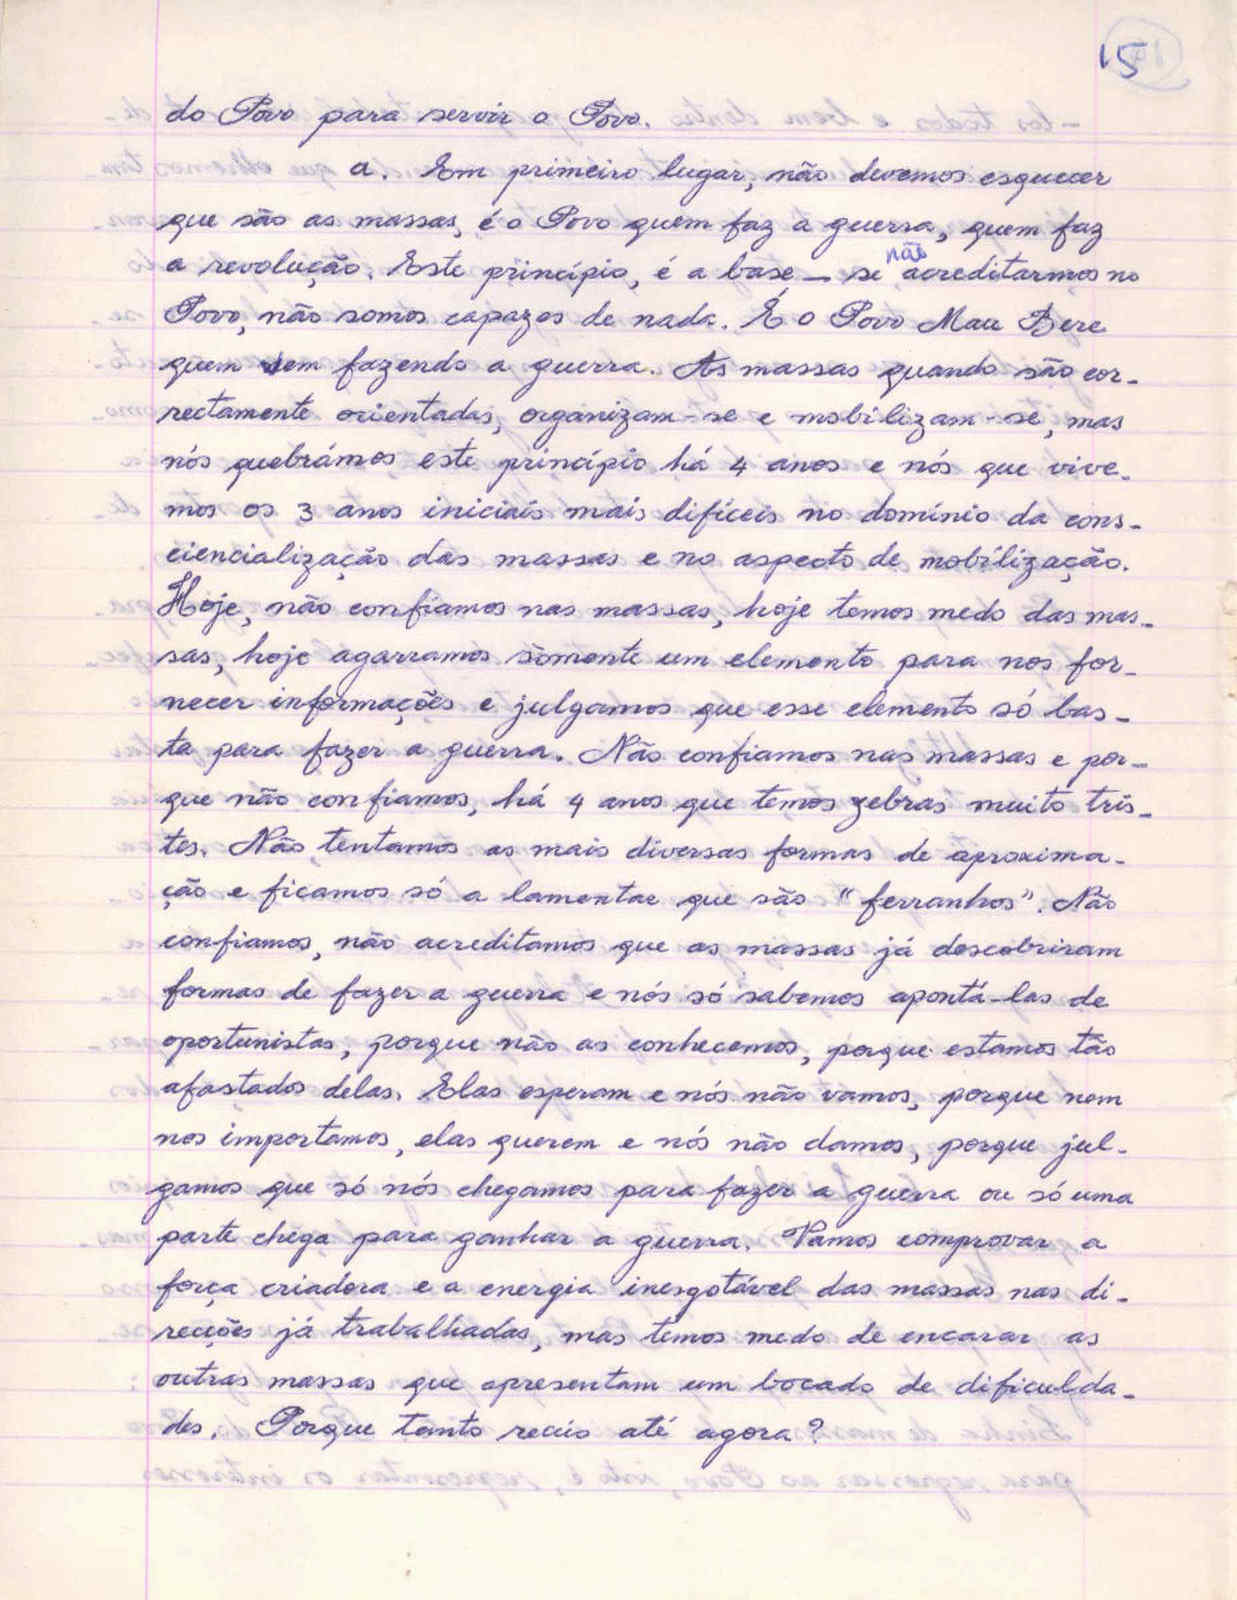 15
do Povo para servir o Povo.
a. Em primeiro lugar, não devemos esquecer
que são as massas, é o Povo quem faz a guerra, quem faz
a revolução. Este princípio, é a base _ se não acreditarmos no
Povo, não somos capazes de nada. É o Povo Mau Bere
quem vem fazendo a guerra. As massas quando são cor-
rectamente orientadas, organizam-se e mobilizam-se, mas
nós quebrámos este princípio há 4 anos e nós que vive-
mos os 3 anos iniciais mais difíceis no domínio da cons-
ciencialização das massas e no aspecto de mobilização.
Hoje, não confiamos nas massas, hoje temos medo das mas-
sas, hoje agarramos sòmente um elemento para nos for-
necer informações e julgamos que esse elemento só bas-
ta para fazer a guerra. Não confiamos nas massas e por-
que não confiamos, há 4 anos que temos zebras muito tris-
tes. Não tentamos as mais diversas formas de aproxima-
ção e ficamos só a lamentar que são "ferranhos". Não
confiamos, não acreditamos que as massas já descobriram
formas de fazer a guerra e nós só sabemos apontá-las de
oportunistas, porque não as conhecemos, porque estamos tão
afastados delas. Elas esperam e nós não vamos, porque nem
nos importamos, elas querem e nós não damos, porque jul-
gamos que só nós chegamos para fazer a guerra ou só uma
parte chega para ganhar a guerra. Vamos comprovar a
força criadora e a energia inesgotável das massas nas di-
recções já trabalhadas, mas temos medo de encarar as
outras massas que apresentam um bocado de dificulda-
des. Porque tanto receio até agora?